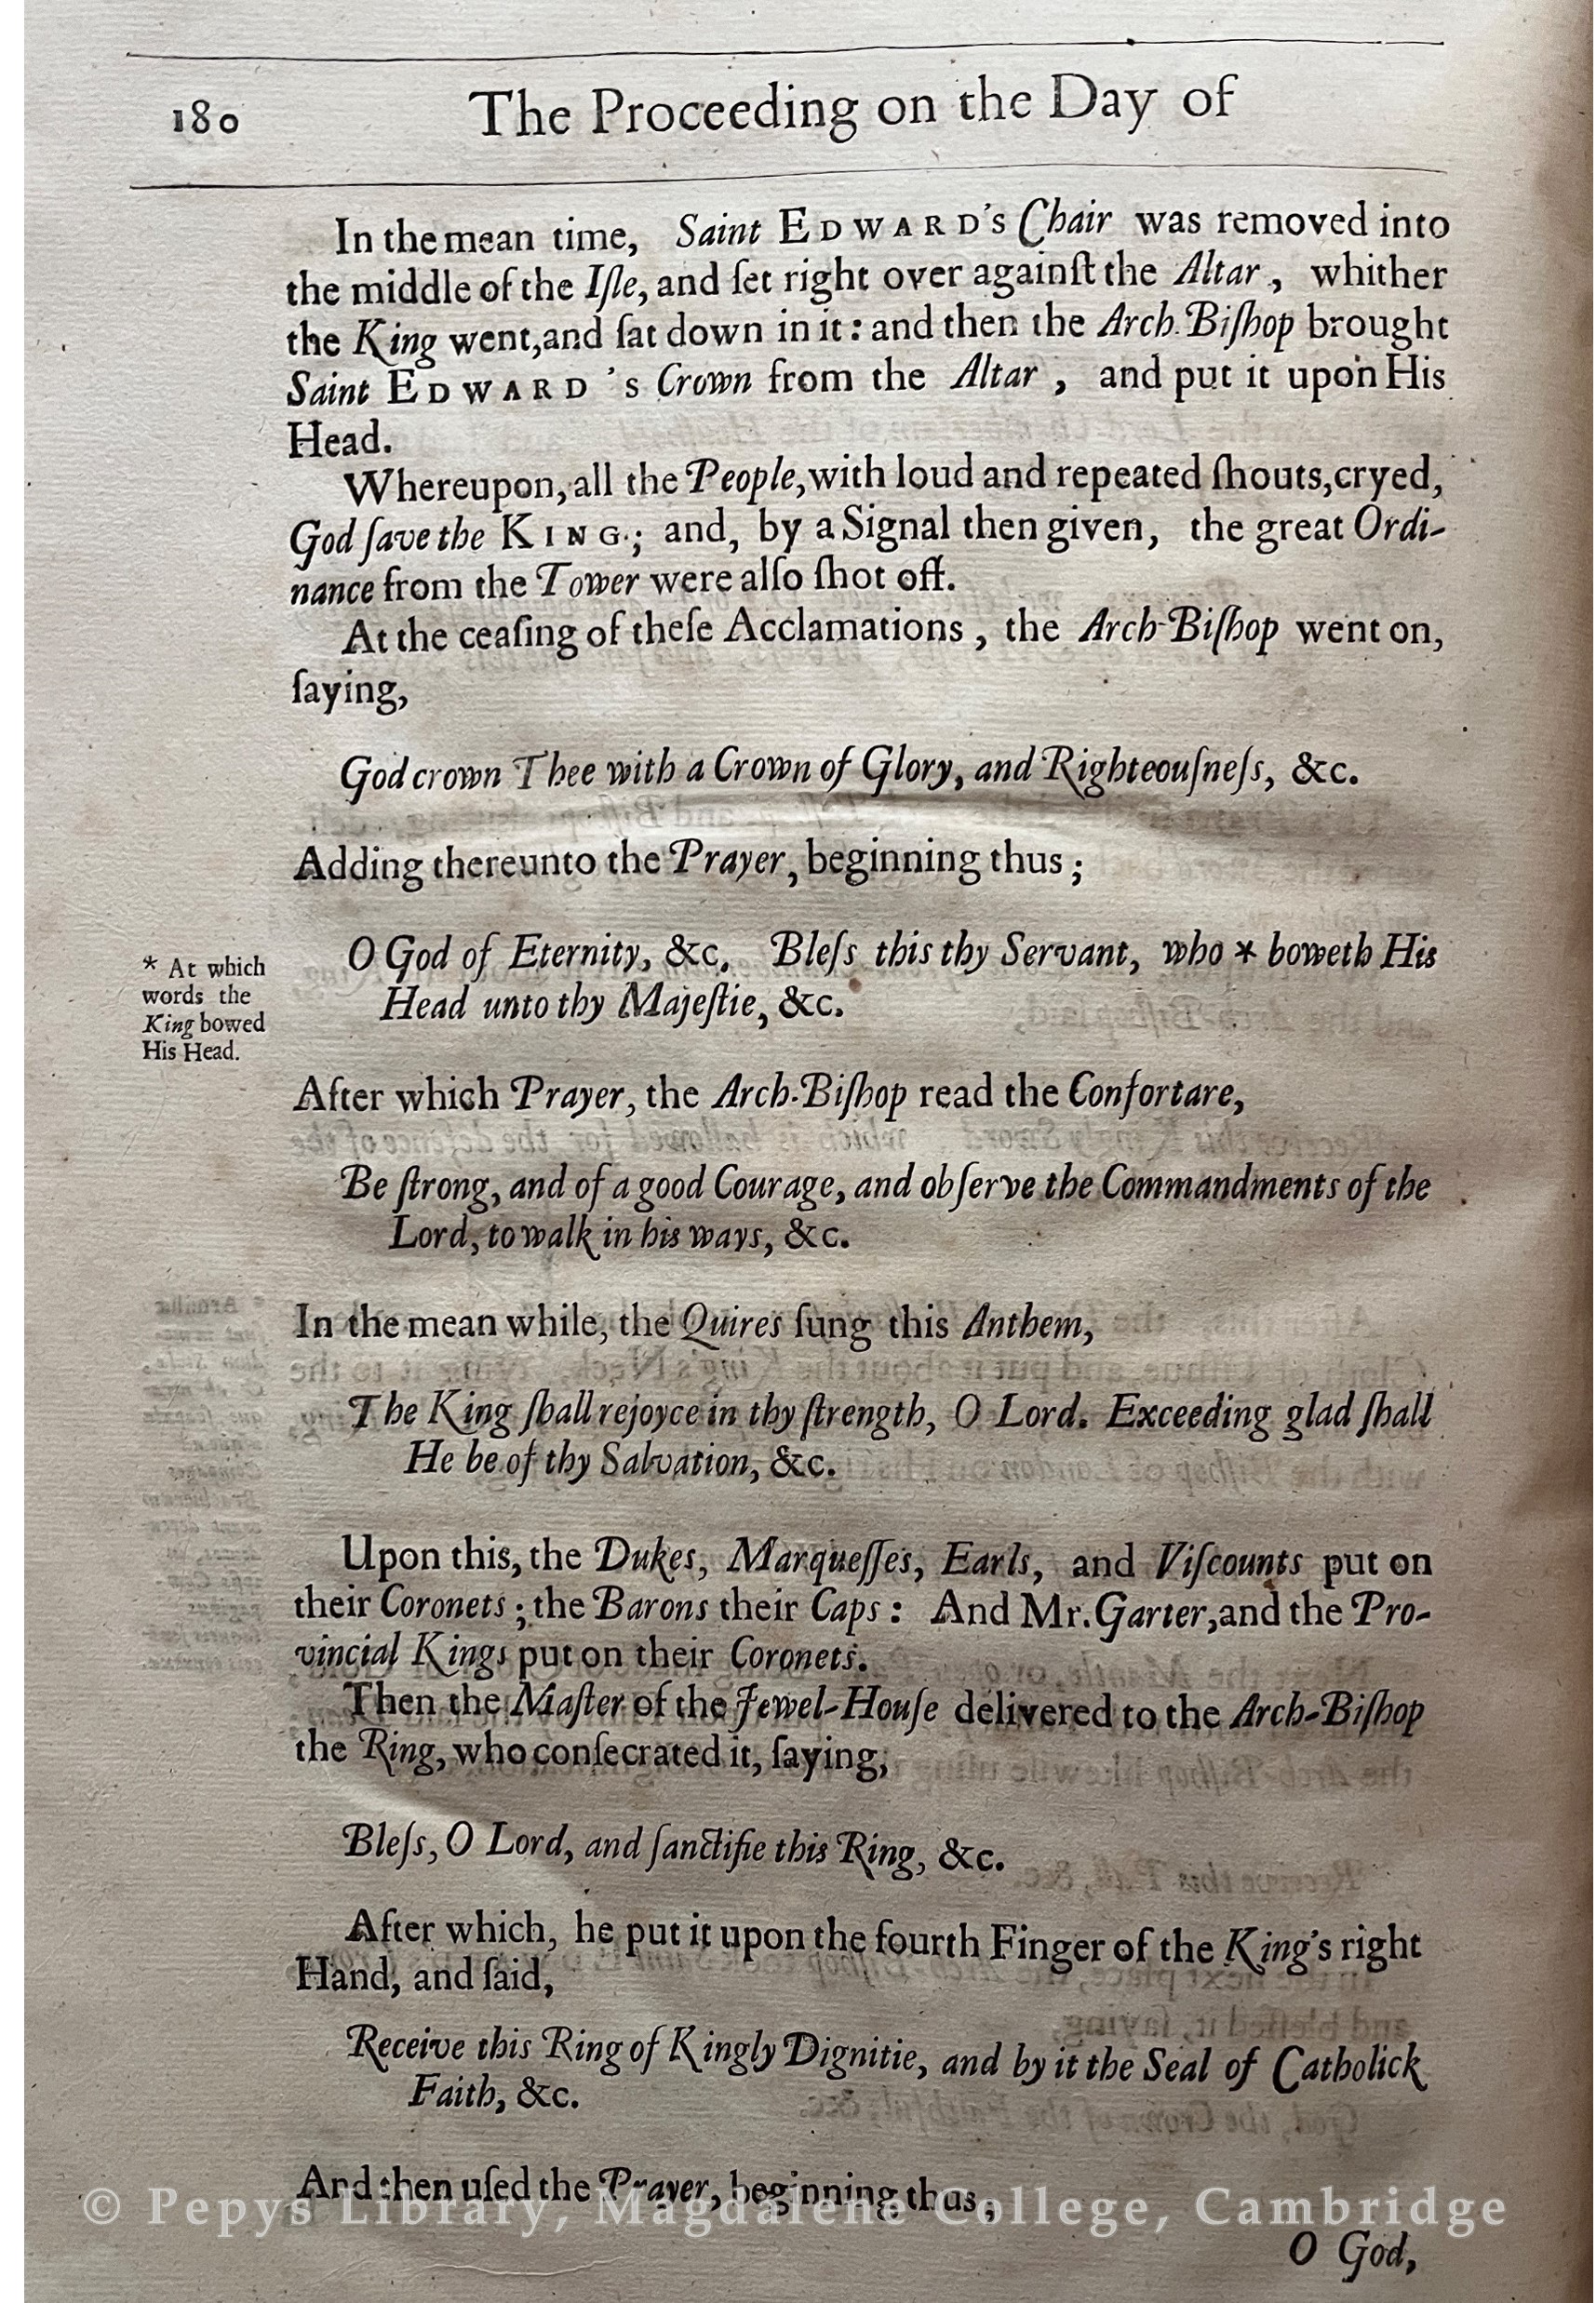 180 The Proceeding on the Day of
In the mean time, Saint EDWARD's Chair was removed into
the middle of the Iſle, and ſet right over againſt the Altar, whither
the King went, and ſat down in it: and then the Arch-Biſhop brought
Saint EDWARD's Crown from the Altar, and put it upon His
Head.
Whereupon, all the People, with loud and repeated ſhouts, cryed,
God ſave the KING; and, by a Signal then given, the great Ordi-
nance from the Tower were alſo ſhot off.
At the ceaſing of theſe Acclamations, the Arch-Biſhop went on,
ſaying,
God crown Thee with a Crown of Glory, and Righteouſneſs, &c.
Adding thereunto the Prayer, beginning thus;
O God of Eternity, &c. Bleſs this thy Servant, who * boweth His
Head unto thy Majeſtie, &c.
* At which
words the
King bowed
His Head.
After which Prayer, the Arch-Biſhop read the Confortare,
Be ſtrong, and of a good Courage, and obſerve the Commandments of the
Lord, to walk in his ways, &c.
In the mean while, the Quires ſung this Anthem,
The King ſhall rejoyce in thy ſtrength, O Lord. Exceeding glad ſhall
He be of thy Salvation, &c.
Upon this, the Dukes, Marqueſſes, Earls, and Viſcounts put on
their Coronets; the Barons their Caps: And Mr. Garter, and the Pro-
vincial Kings put on their Coronets.
Then the Maſter of the Jewel-Houſe delivered to the Arch-Biſhop
the Ring, who conſecrated it, ſaying,
Bleſs, O Lord, and ſanctifie this Ring, &c.
After which, he put it upon the fourth Finger of the King's right
Hand, and ſaid,
Receive this Ring of Kingly Dignitie, and by it the Seal of Catholick
Faith, &c.
And then uſed the Prayer, beginning thus;
© Pepys Library, Magdalene College, Cambridge
O God,